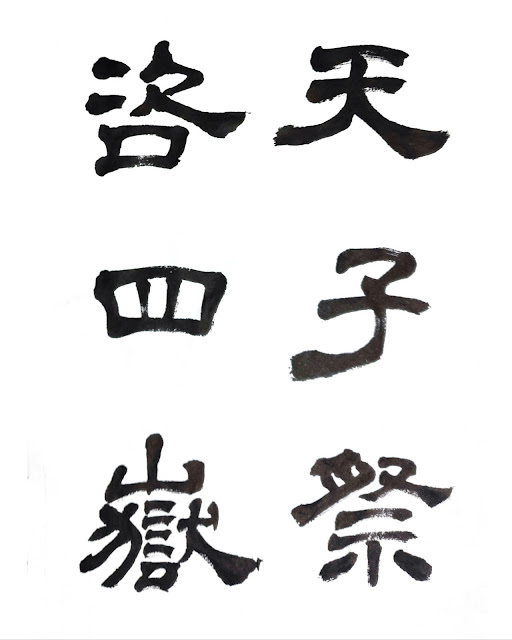 天子祭
咨四嶽